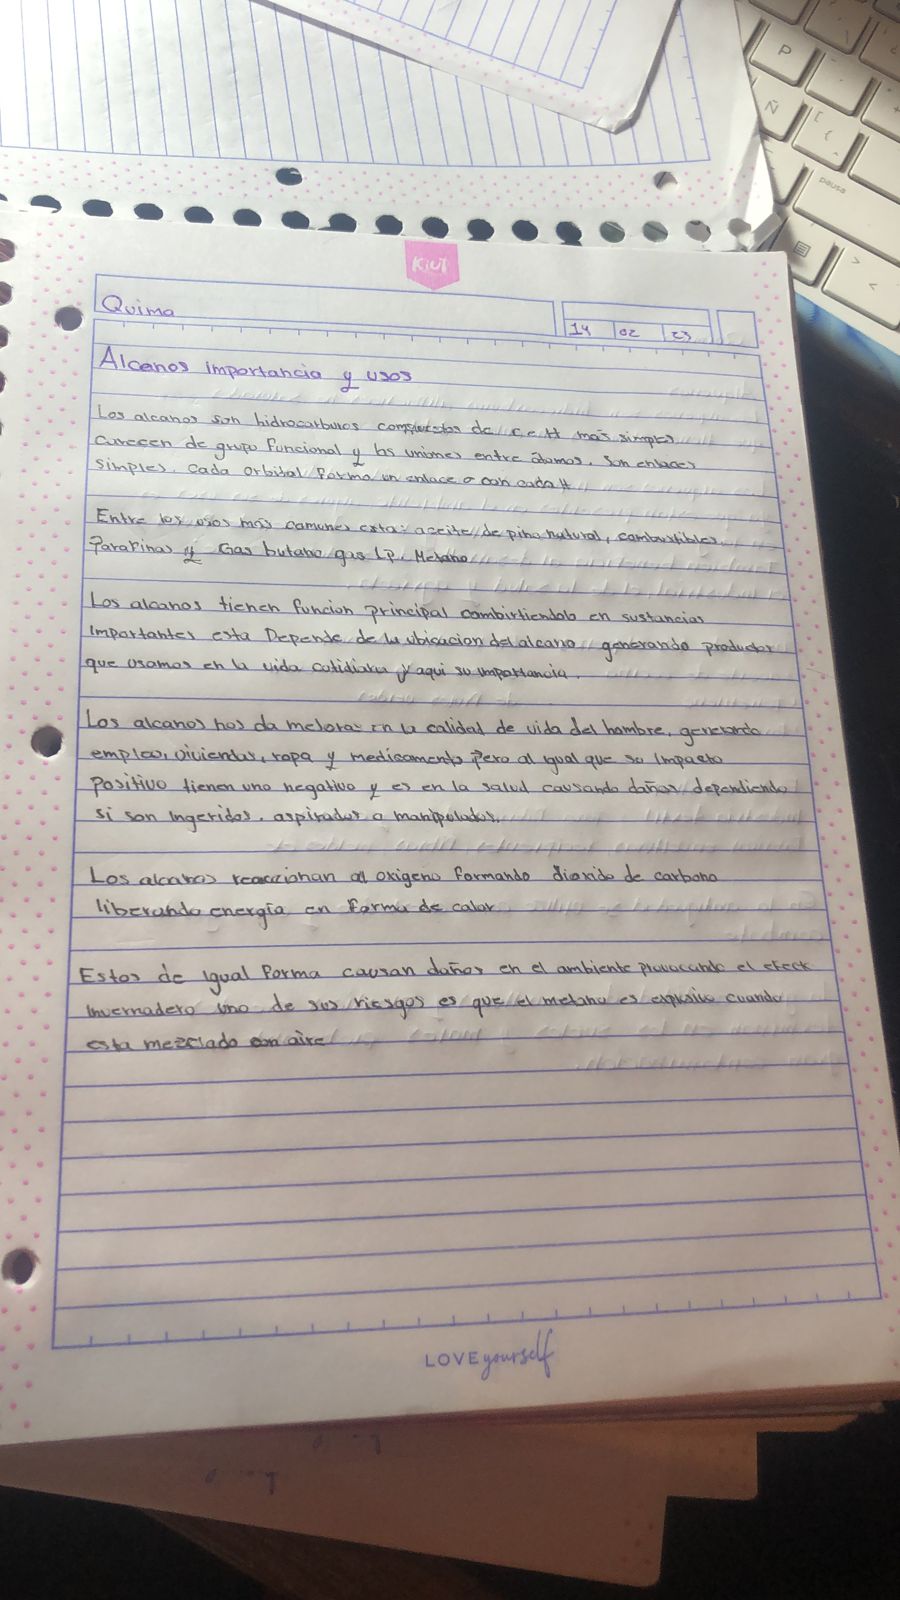 P
Ñ
pausa
KIUT
Quima
14 02 23
Alcanos importancia y usos
Los alcanos son hidrocarburos compuestos de C e H más simples
carecen de grupo funcional y las uniones entre átomos. Son enlaces
simples. cada orbital forma un enlace σ con cada H
Entre los usos más comunes esta: aceite de pino natural, combustibles
Parafinas y Gas butano gas LP. Metano
Los alcanos tienen funcion principal combirtiendolo en sustancias
importantes esta Depende de la ubicacion del alcano generando productos
que usamos en la vida cotidiana y aqui su importancia.
Los alcanos nos da mejoras en la calidad de vida del hombre, generando
empleo, viviendas, ropa y medicamento pero al igual que su impacto
positivo tienen uno negativo y es en la salud causando daños dependiendo
si son ingeridos, aspirados o manipulados.
Los alcanos reaccionan al oxigeno formando dioxido de carbono
liberando energía en forma de calor
Estos de igual forma causan daños en el ambiente provocando el efect
invernadero uno de sus riesgos es que el metano es explosivo cuando
esta mezclado con aire
LOVE yourself